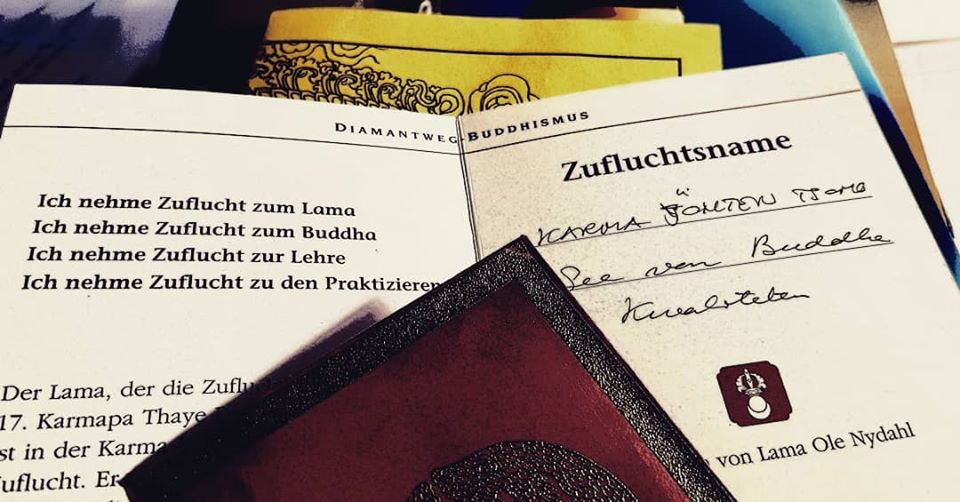 DIAMANTWEG-BUDDHISMUS
Ich nehme Zuflucht zum Lama
Ich nehme Zuflucht zum Buddha
Ich nehme Zuflucht zur Lehre
Ich nehme Zuflucht zu den Praktizieren
Der Lama, der die Zuflu
17. Karmapa Thaye
st in der Karma
uflucht. Er
Zufluchtsname
KARMA YÖNTEN TSOMO
See von Buddha
Kvaliteten
von Lama Ole Nydahl